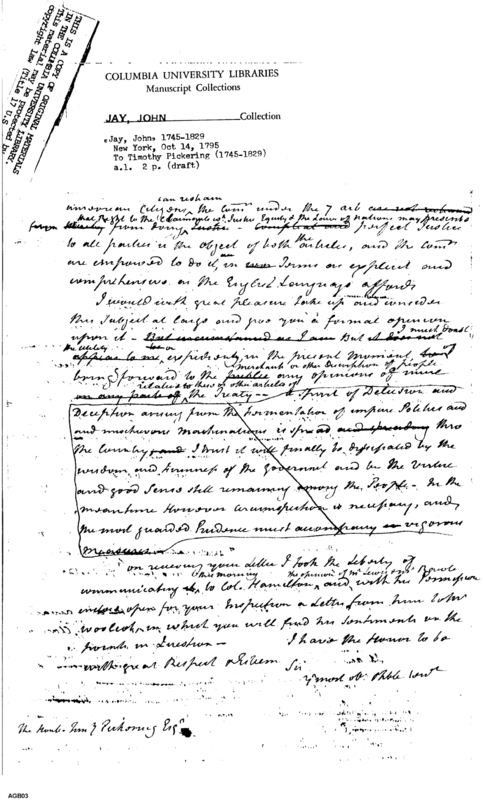 THIS IS A COPY OF ORIGINAL MATERIALS
IN THE COLUMBIA UNIVERSITY LIBRARY.
This material may be protected by
copyright law (Title 17 U.S.
COLUMBIA UNIVERSITY LIBRARIES
Manuscript Collections
JAY, JOHN Collection
Jay, John, 1745-1829
New York, Oct 14, 1795
To Timothy Pickering (1745-1829)
a.l. 2 p. (draft)
american Citizens, the Comrs under the 7 art
from doing Justice - compleat and perfect Justice
to all parties is the object of both the articles, and the Comrs
are empowered to do it, in Terms as explicit and
comprehensive as the English Language affords
I would with great pleasure take up and consider
this Subject at large and give you a formal opinion
upon it - But I much doubt
the utility in the present moment of
bring forward to the any opinions of mine
merchants or other Description of people
relative to this or other articles of
on any parts of the Treaty - a spirit of Delusion and
Deception arising from the Fermentation of impure Politics and
and mischievous machinations is spread thro
the Country I trust it will finally be dissipated by the
wisdom and firmness of the Government and by the virtue
and good Sense still remaining among the People. In the
meantime However circumspection is necessary, and
the most guarded Prudence must accompany vigorous
measures
on receiving your Letter I took the Liberty of
this morning
communicating to Col. Hamilton, and with his Permission
open for your Inspection a Letter from him to Mr
Woolcott, in which you will find his Sentiments on the
points in Question - I have the Honor to be
with great Respect & Esteem Sir
yr most ob. & hble servt
The Honb. Tim. Pickering Esqr
AGB03